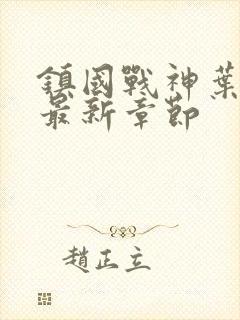 鎮國戰神葉
最新章節
趙正立